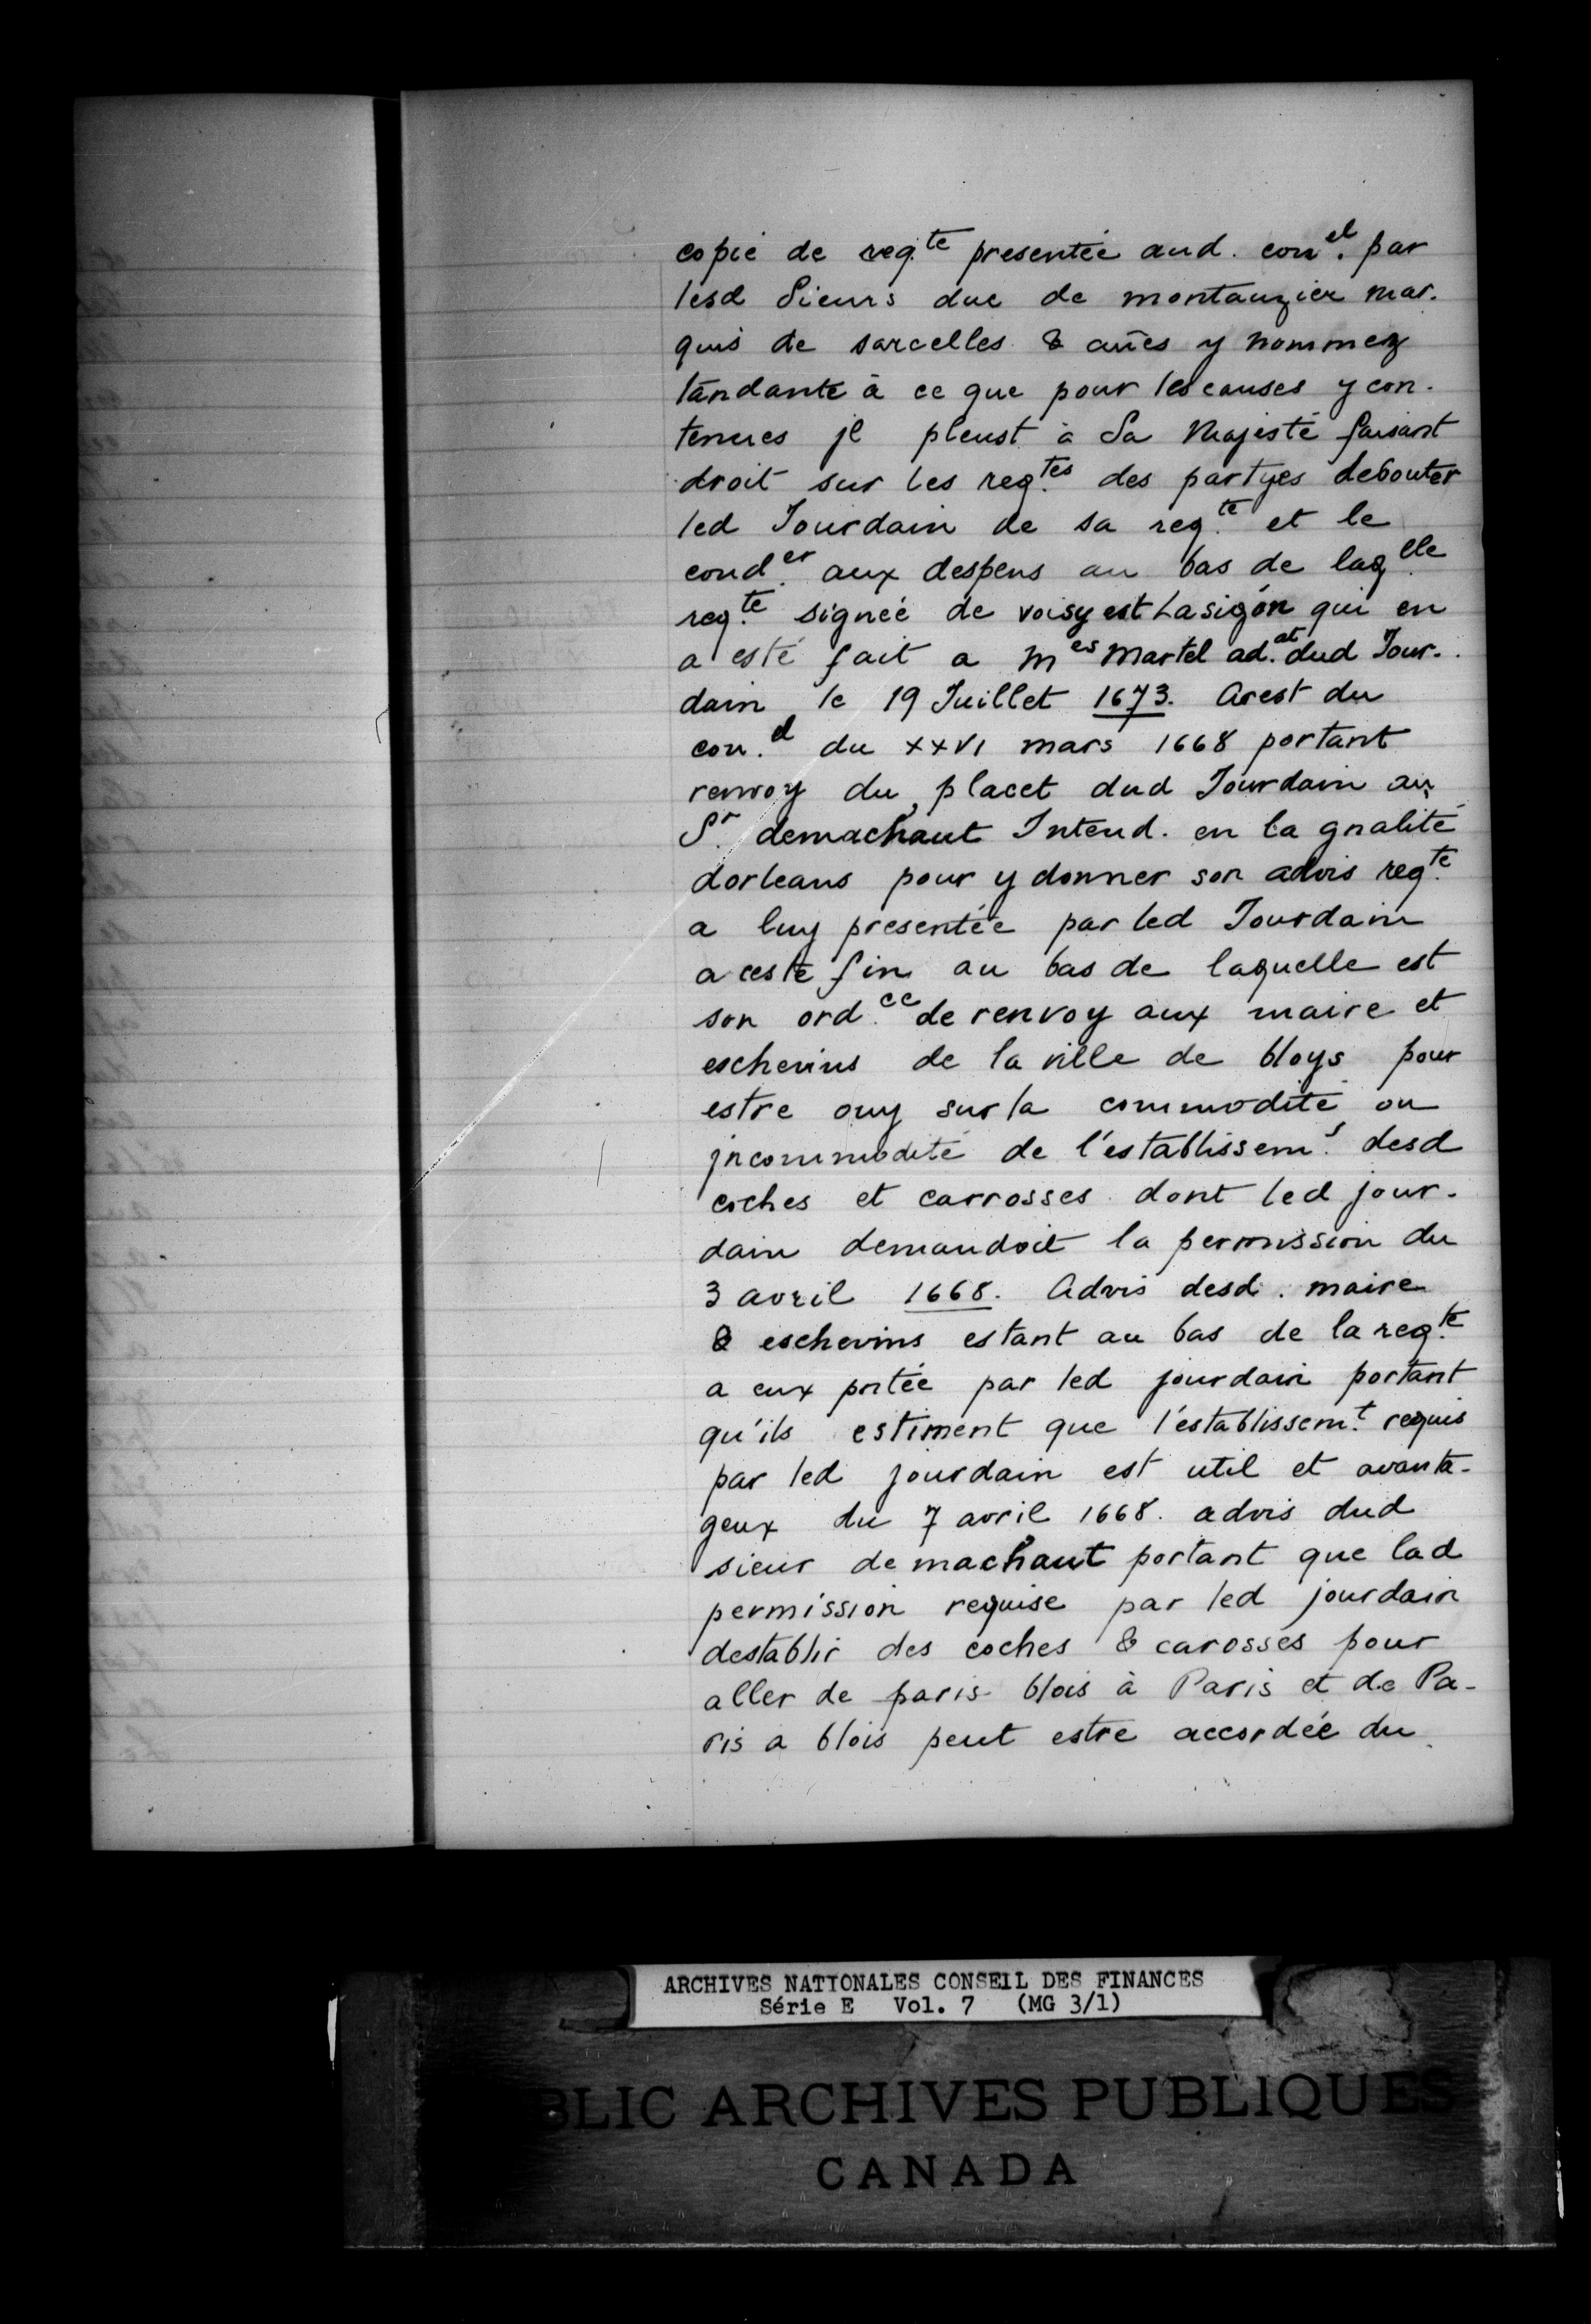 copie de reqte presentée aud. conel. par
lesd Sieurs duc de montauzier mar-
quis de sarcelles & aũes y nommez
tandante à ce que pour les causes y con-
tenues jl pleust à Sa Majesté faisant
droit sur les reqtes des partyes debouter
led Jourdain de sa reqte et le
conder aux despens au bas de laqlle
reqte signée de voisy est la sigōn qui en
a esté fait a mes Martel ad.at dud Jour-
dain le 19 Juillet 1673. Arest du
con.el du XXVI mars 1668 portant
renvoy du placet dud Jourdain au
Sr. demachaut Intend. en la gnalité
dorleans pour y donner son advis reqte
a luy presentée par led Jourdain
a ceste fin au bas de laquelle est
son ord.ce de renvoy aux maire et
eschevins de la ville de bloys pour
estre ouy sur la commodité ou
jncommodité de l'establissem.t desd
coches et carrosses dont led jour-
dain demandoit la permission du
3 avril 1668. Advis desd. maire
& eschevins estant au bas de la reqte
a eux pntée par led jourdain portant
qu'ils estiment que l'establissem.t requis
par led jourdain est util et avanta-
geux du 7 avril 1668. advis dud
sieur de machaut portant que lad
permission requise par led jourdain
destablir des coches & carosses pour
aller de paris blois à Paris et de Pa-
ris a blois peut estre accordée du
ARCHIVES NATIONALES CONSEIL DES FINANCES
Série E Vol. 7 (MG 3/1)
BLIC ARCHIVES PUBLIQUES
CANADA